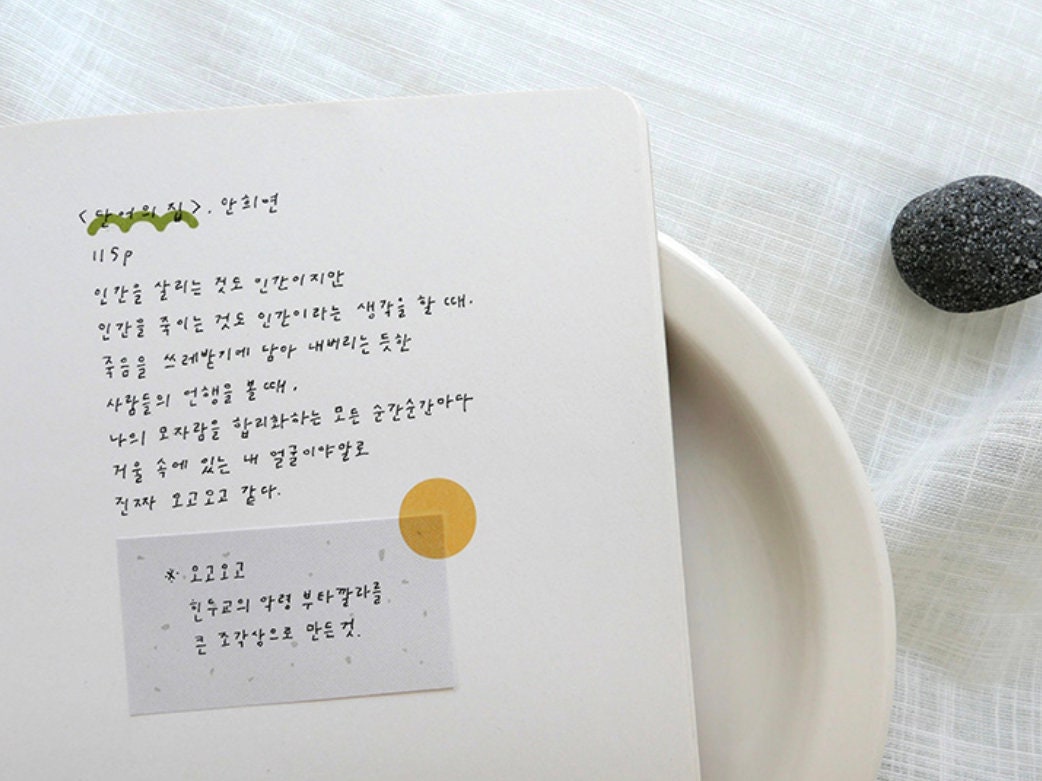 <단어의 집>. 안희연
115p
인간을 살리는 것도 인간이지만
인간을 죽이는 것도 인간이라는 생각을 할 때.
죽음을 쓰레받기에 담아 내버리는 듯한
사람들의 언행을 볼 때.
나의 모자람을 합리화하는 모든 순간순간마다
거울 속에 있는 내 얼굴이야말로
진짜 오고오고 같다.
* 오고오고
힌두교의 악령 부타깔라를
큰 조각상으로 만든 것.